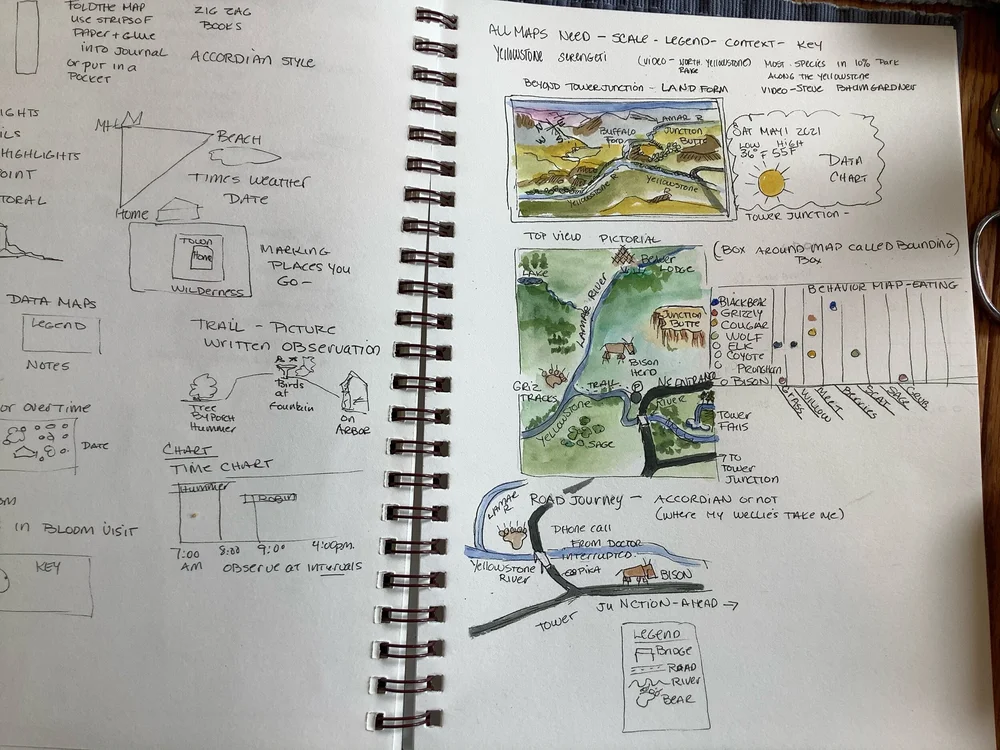 FOLD THE MAP
USE STRIPS OF
PAPER + GLUE
INTO JOURNAL
OR PUT IN A
POCKET
ZIG ZAG
BOOKS
ACCORDIAN STYLE
HIGHLIGHTS
POINT
BEACH
TIMES WEATHER
DATE
Home
TOWN
Home
WILDERNESS
MARKING
PLACES YOU
GO -
DATA MAPS
LEGEND
NOTES
TRAIL - PICTURE
WRITTEN OBSERVATION
Tree
BY PORH
Hummer
Birds
at
Fountain
on
ARBOR
OR OVER TIME
DATE
CHART
TIME CHART
Hummer
ROBIN
7:00
AM
8:00
9:00
4:00pm.
OBSERVE AT INTERVALS
IN BLOOM VISIT
KEY
ALL MAPS NEED - SCALE - LEGEND - CONTEXT - KEY
YELLOWSTONE SERENGETI
(VIDEO - NORTH. YELLOWSTONE)
RANGE
MOST SPECIES IN 10% PARK
ALONG THE YELLOWSTONE
VIDEO - STEVE BAUMGARDNER
BEYOND TOWER JUNCTION - LAND FORM
LAMAR R
BUFFALO
FORD
JUNCTION
BUTTE
YELLOWSTONE R
YELLOWSTONE
R
SAT MAY 1 2021
LOW HIGH
36°F 55°F
DATA
CHART
TOWER JUNCTION -
TOP VIEW PICTORIAL
(BOX AROUND MAP CALLED BOUNDING)
BOX
LAKE
BEAVER
LODGE
LAMAR RIVER
JUNCTION
BUTTE
BISON
HERD
GRIZ
TRACKS
TRAIL
P
NE ENTRANCE
YELLOWSTONE
RIVER
SAGE
TOWER
FALLS
TO
TOWER
JUNCTION
BEHAVIOR MAP - EATING
BLACKBEAR
GRIZZLY
COUGAR
WOLF
ELK
COYOTE
PRONGHORN
BISON
GRASS
WILLOW
MEAT
BERRIES
SCAT
SAGE
ROAD JOURNEY - ACCORDIAN OR NOT
(WHERE MY WELLIES TAKE ME)
LAMAR
R
PHONE CALL
FROM DOCTOR
INTERRUPTED
YELLOWSTONE
RIVER
BISON
JUNCTION - AHEAD →
TOWER
LEGEND
BRIDGE
ROAD
RIVER
BEAR